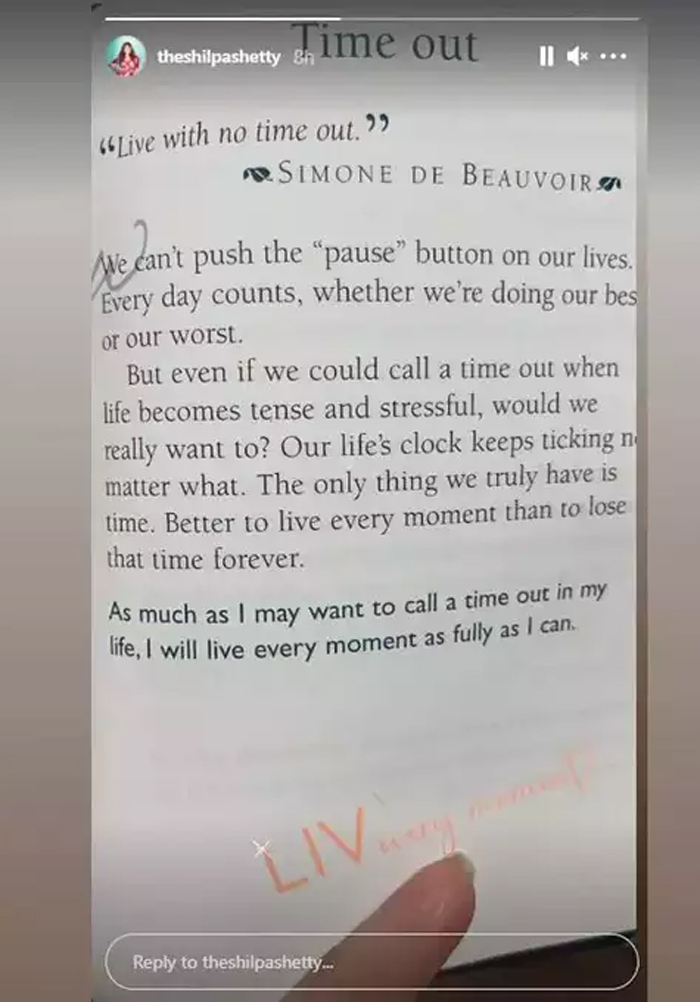 Time out
theshilpashetty 8h
“Live with no time out.”
SIMONE DE BEAUVOIR
We can't push the “pause” button on our lives.
Every day counts, whether we're doing our bes
or our worst.
But even if we could call a time out when
life becomes tense and stressful, would we
really want to? Our life's clock keeps ticking n
matter what. The only thing we truly have is
time. Better to live every moment than to lose
that time forever.
As much as I may want to call a time out in my
life, I will live every moment as fully as I can.
LIV every moment
Reply to theshilpashetty...